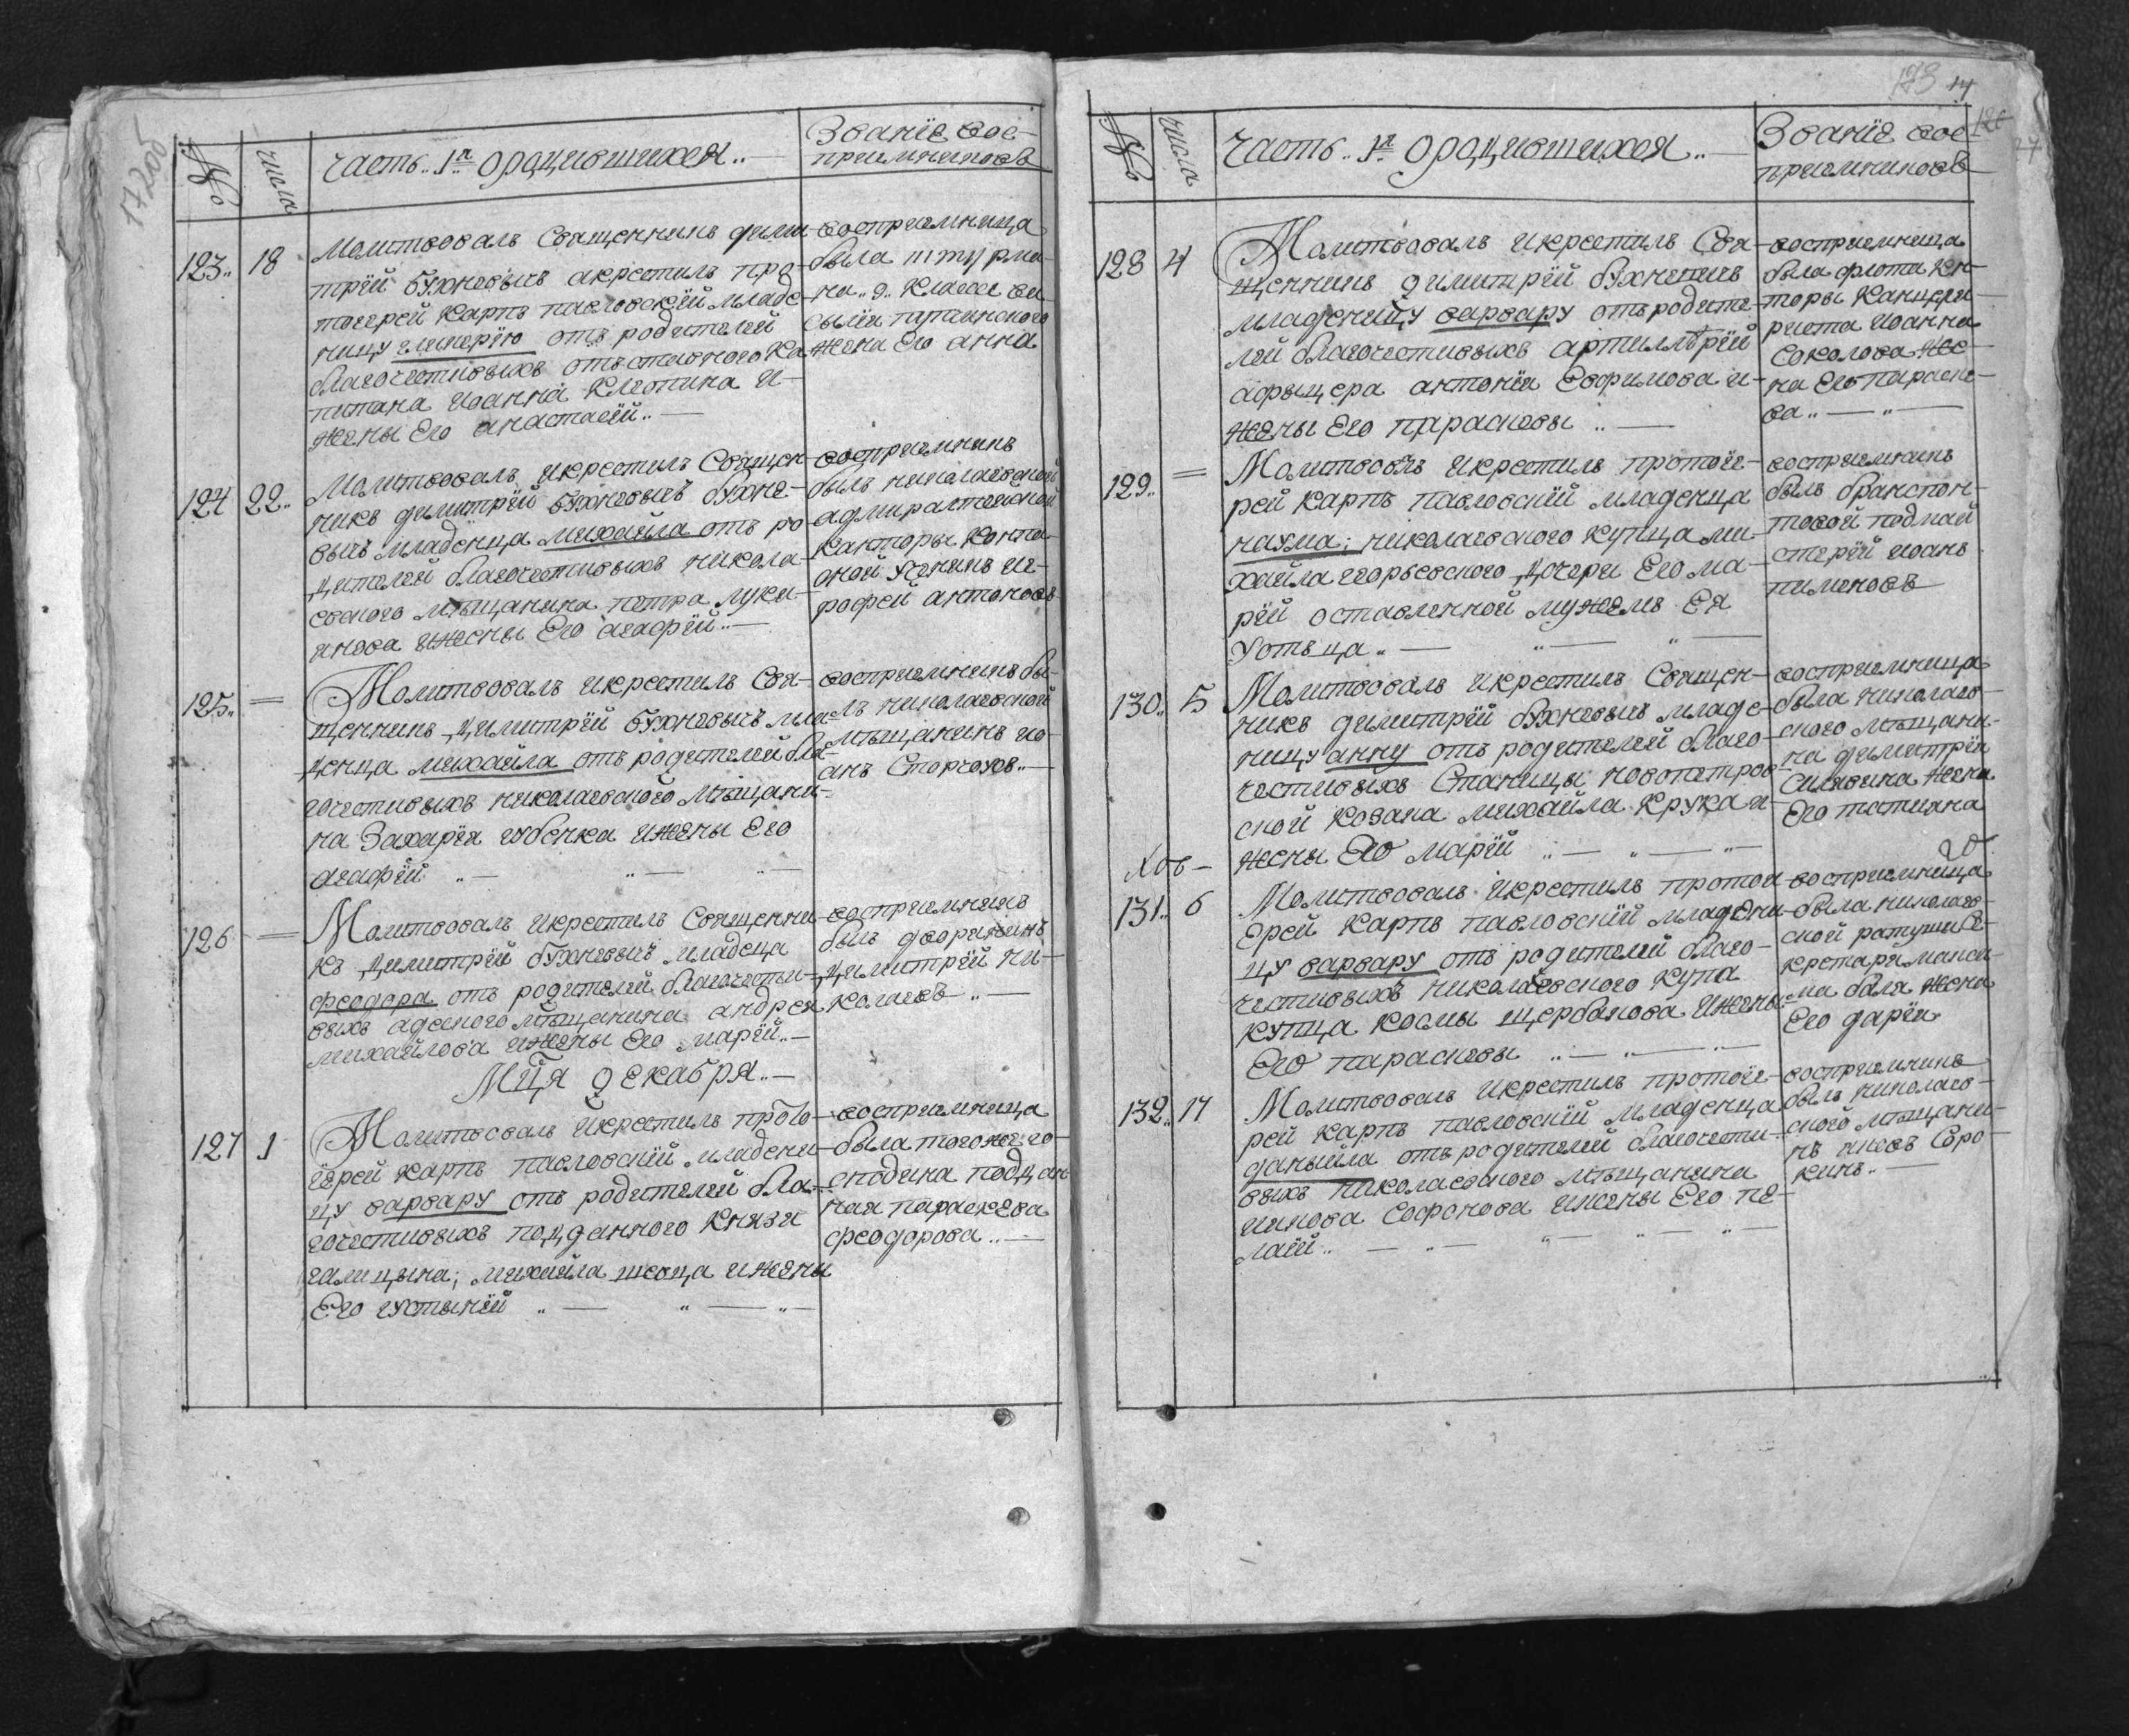 17206
№
числа
часть 1я ородившихся
Званіе вос-
приемниковъ
123 18
Молитвовалъ Священникъ дими-
трій Бухневычъ акрестилъ про-
тоиерей Карпъ павловскій младе-
ницу гликерію отъ родителей
благочестивыхъ отъставного Ка-
питана иоанна Клеопина и-
жены Его анастасіи
восприемница
была штурма-
на 9 Класса ва-
сылія
жена Его анна
124 22
Молитвовалъ икрестилъ Священ-
никъ димитрій Бухневычъ бухне-
вычъ младенца михаила отъ ро-
дителей благочестивыхъ никола-
евского мѣщанина петра луки-
анова ижены Его агафіи
восприемникъ
былъ николаевской
адмиралтейской
канторы конто-
рской Ученикъ ие-
рофей антоновъ
125 =
Молитвовалъ икрестилъ Свя-
щенникъ димитрій бухневычъ мла-
денца михаила отъ родителей бла-
гочестивыхъ николаевского мѣщани-
на Захарія губенка ижены Его
агафіи
восприемникъ бы-
лъ николаевской
мѣщанинъ ио-
анъ Сторчохъ
126 =
Молитвовалъ икрестилъ Священни-
къ димитрій бухневычъ младеца
феодора отъ родителей благочести-
выхъ адеского мѣщанина андрея
михайлова ижены Его маріи
восприемникъ
былъ дворянинъ
димитрій ни-
колаевъ
Мця декабря
127 1
Молитвовалъ икрестилъ прото-
іерей карпъ павловскій младени-
цу варвару отъ родителей бла-
гочестивыхъ подданного Князя
галицына; михаила швеца ижены
Его иустыніи
восприемница
была того же го-
сподина поддан-
ная параскева
феодорова
173 14
126
27
№
числа
часть 1я ородившихся
Званіе вос-
приемниковъ
128 4
Молитвовалъ икрестилъ Свя-
щенникъ димитрій бухневычъ
младеницу варвару отъ родите-
лей благочестивыхъ артиллѣріи
афыцера антонія Ефимова и-
жены Его параскевы
восприемница
была флота кн-
торы канцеля-
риста иоанна
Соколова же-
на Его параске-
ва
129 =
Молитвовалъ икрестилъ протоіе-
рей карпъ павловскій младенца
наума; николаевского купца ми-
хайла егорьевского дочери Его ма-
ріи оставленной мужемъ Ея
Уотьца
восприемникъ
былъ бранспон-
товой подмай
стерій иоанъ
пименовъ
130 5
Молитвовалъ икрестилъ Священ-
никъ димитрій бухневычъ младе-
ницу анну отъ родителей благо-
честивыхъ Станицы новопетров-
ской козака михайла Крука и-
жены Его маріи
восприемница
была николаев-
ского мѣщани-
на димитрія
Силявина жена
Его татиана
131 6
Молитвовалъ икрестилъ протои-
Ерей карпъ павловскій младени-
цу варвару отъ родителей благо-
честивыхъ николаевского купа
купца космы щербакова ижены
Его параскевы
восприемница
была николаев-
ской ратуши се-
кретаря макси-
ма баля жена
Его дарія
132 17
Молитвовалъ икрестилъ протоіе-
рей карпъ павловскій младенца
даныйла отъ родителей благочести-
выхъ николаевского мѣщанина
иакова Софонова ижены Его пе-
лаіи
восприемникъ
былъ николаев-
ской мѣщани-
нъ Соро-
кинъ